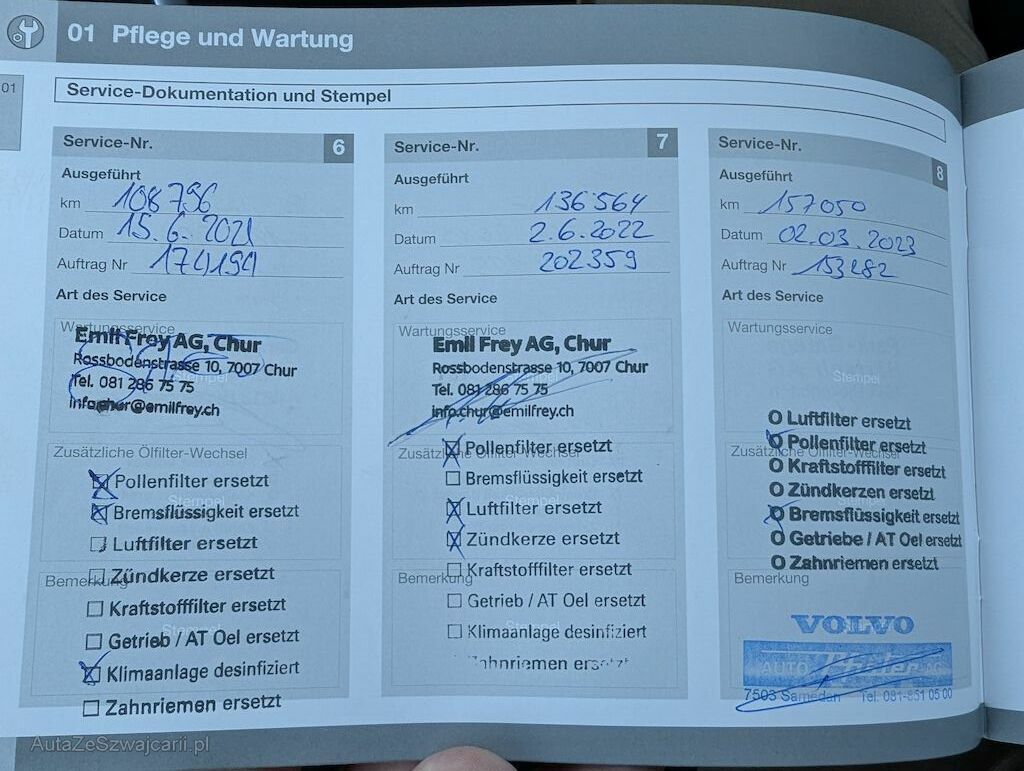 01 Pflege und Wartung
01
Service-Dokumentation und Stempel
Service-Nr. 6
Ausgeführt
km 108 796
Datum 15. 6. 2021
Auftrag Nr 174194
Art des Service
Wartungsservice
Emil Frey AG, Chur
Rossbodenstrasse 10, 7007 Chur
Tel. 081 286 75 75
info.chur@emilfrey.ch
Zusätzliche Ölfilter-Wechsel
Pollenfilter ersetzt
Stempel
Bremsflüssigkeit ersetzt
Luftfilter ersetzt
Bemerkung
Zündkerze ersetzt
Kraftstofffilter ersetzt
Getrieb / AT Oel ersetzt
Klimaanlage desinfiziert
Zahnriemen ersetzt
Service-Nr. 7
Ausgeführt
km 136'564
Datum 2.6.2022
Auftrag Nr 202359
Art des Service
Wartungsservice
Emil Frey AG, Chur
Rossbodenstrasse 10, 7007 Chur
Tel. 081 286 75 75
info.chur@emilfrey.ch
Pollenfilter ersetzt
Zusätzliche Ölfilter-Wechsel
Bremsflüssigkeit ersetzt
Stempel
Luftfilter ersetzt
Zündkerze ersetzt
Kraftstofffilter ersetzt
Bemerkung
Getrieb / AT Oel ersetzt
Klimaanlage desinfiziert
Zahnriemen ersetzt
Service-Nr. 8
Ausgeführt
km 157 050
Datum 02.03.2023
Auftrag Nr 153282
Art des Service
Wartungsservice
Stempel
O Luftfilter ersetzt
O Pollenfilter ersetzt
Zusätzliche Ölfilter-Wechsel
O Kraftstofffilter ersetzt
O Zündkerzen ersetzt
O Bremsflüssigkeit ersetzt
O Getriebe / AT Oel ersetzt
O Zahnriemen ersetzt
Bemerkung
VOLVO
AUTO AG
7503 Samedan Tel. 081-851 05 00
AutaZeSzwajcarii.pl